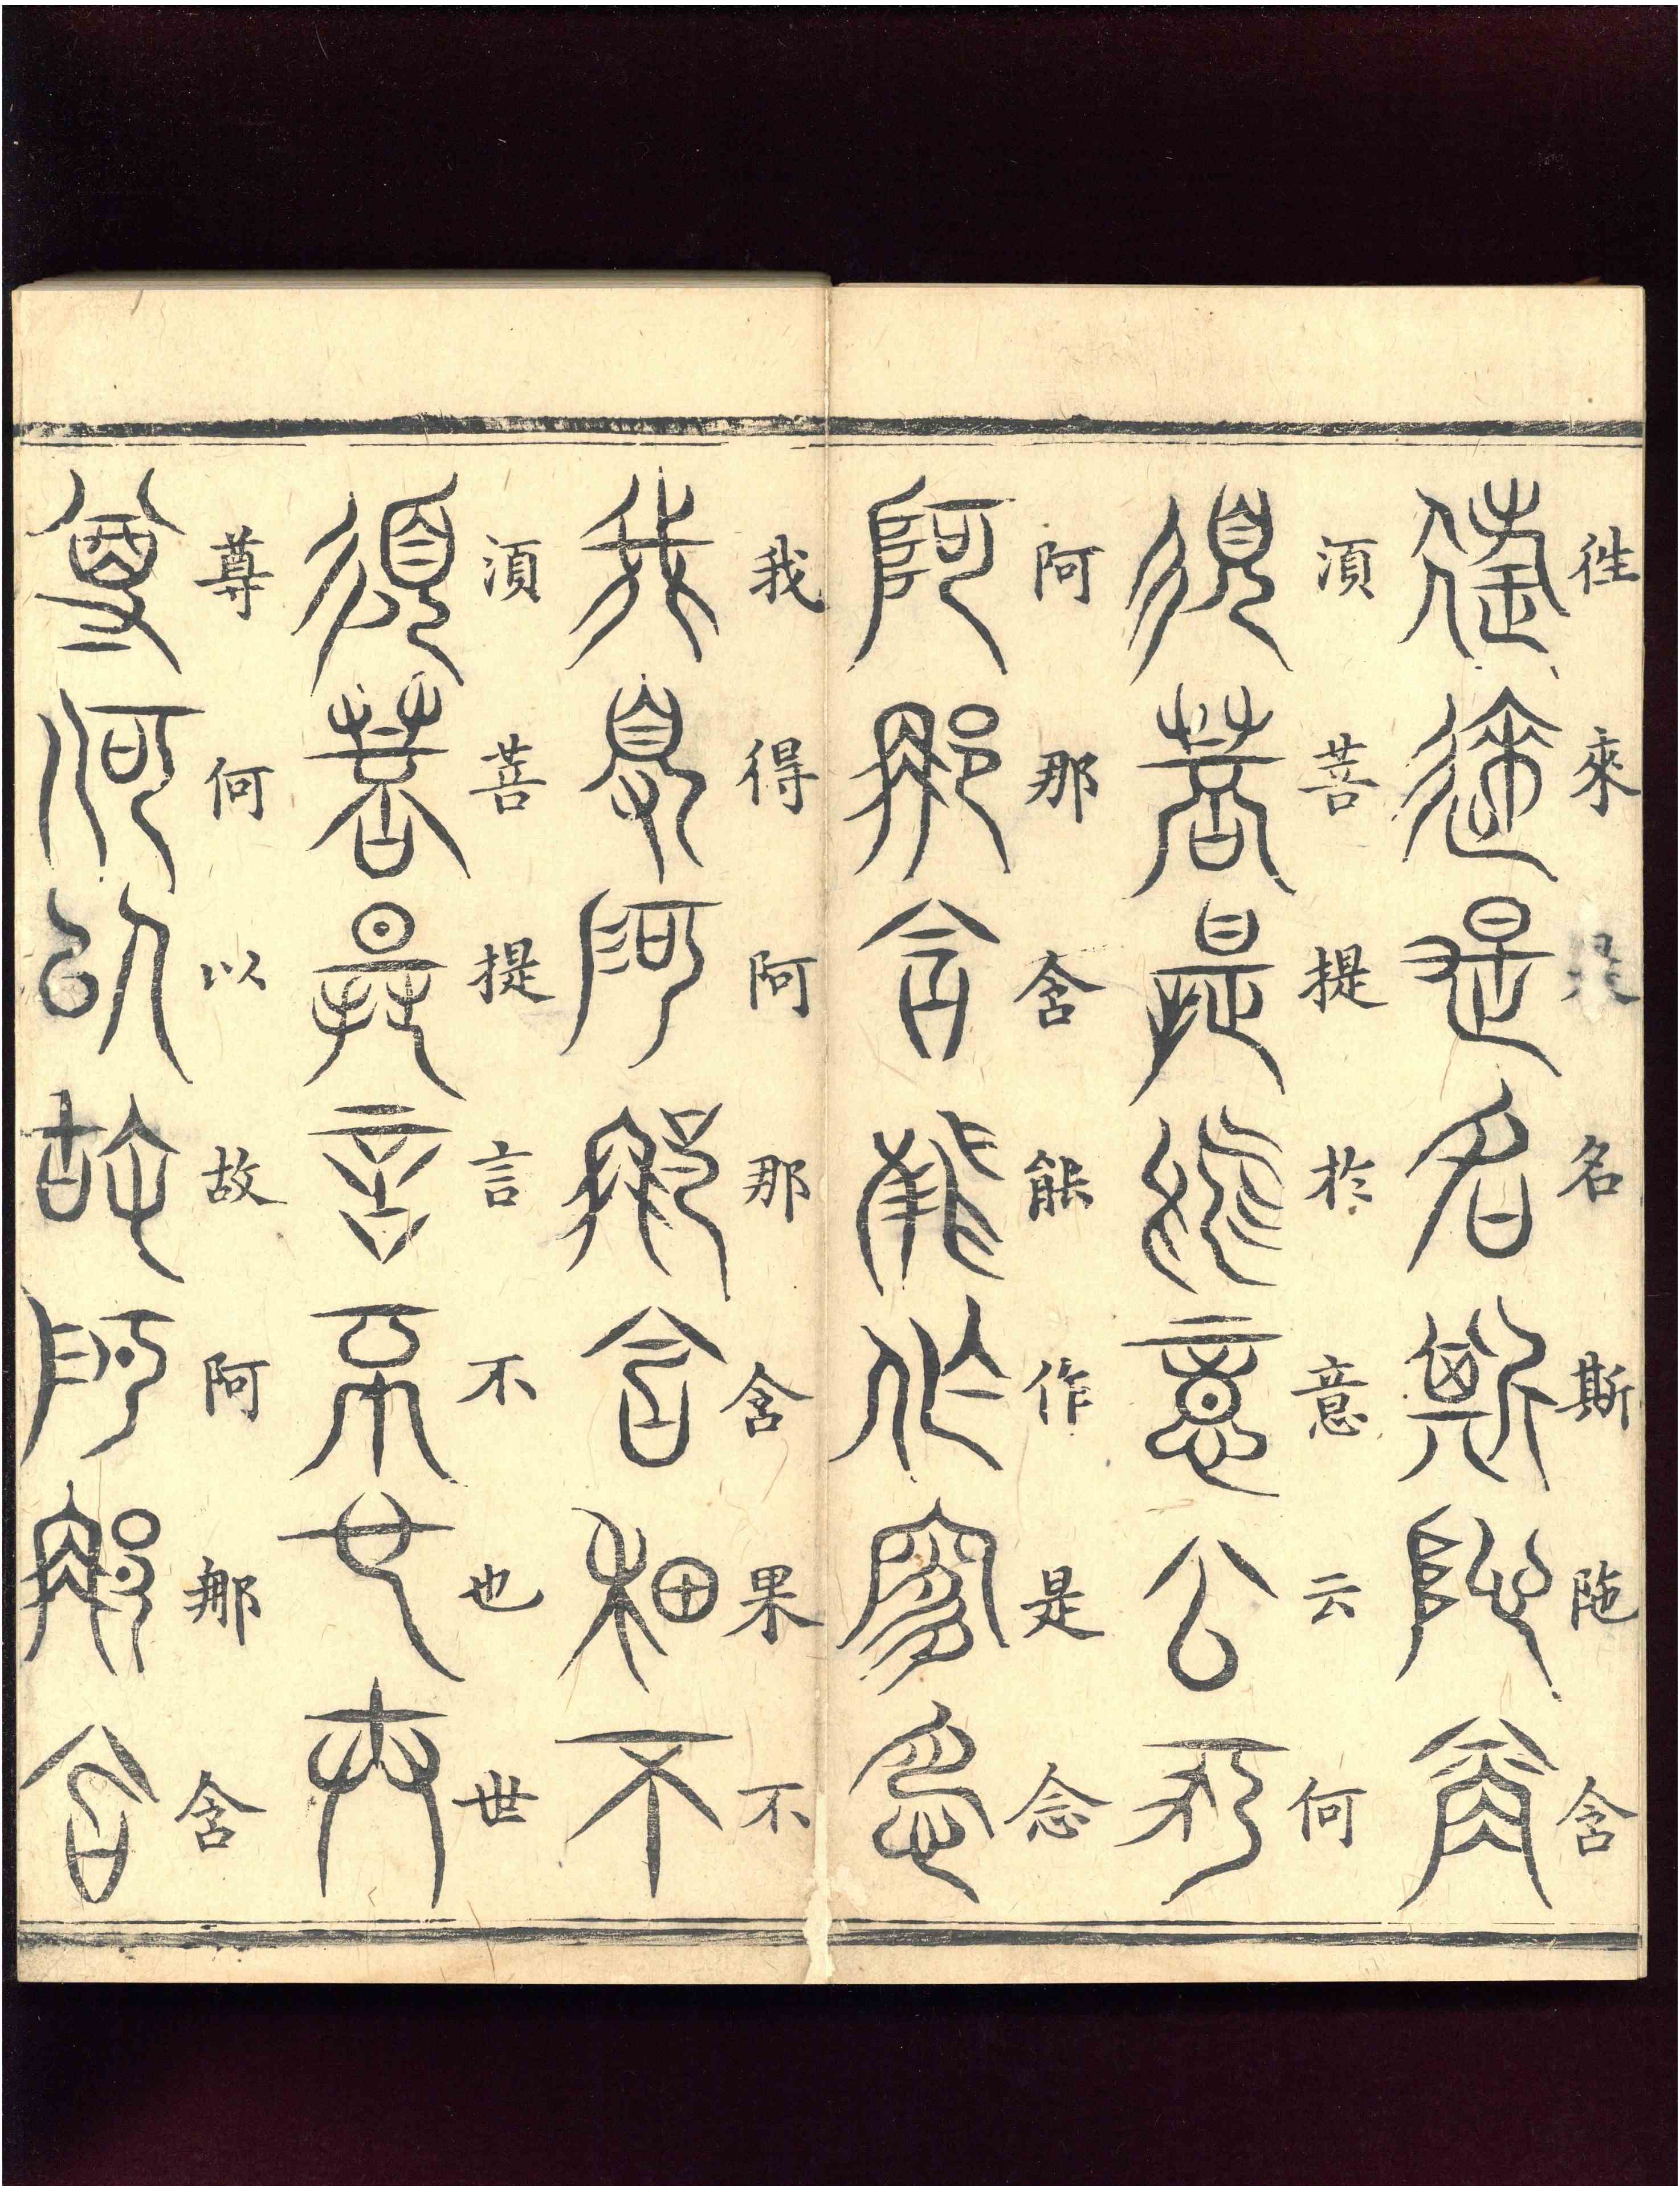 徃來是名斯陁含
湏菩提扵意云何
阿那含能作是念
我得阿那含果不
湏菩提言不也世
尊何以故阿那含